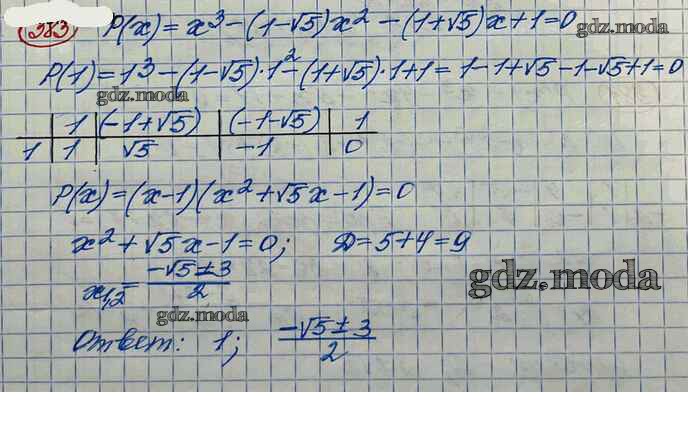 383 P(x) = x³ - (1-√5)x² - (1+√5)x + 1 = 0
gdz.moda
P(1) = 1³ - (1-√5)·1² - (1+√5)·1 + 1 = 1 - 1 + √5 - 1 - √5 + 1 = 0
gdz.moda
gdz.moda
1 | (-1+√5) | (-1-√5) | 1
1 | 1 | √5 | -1 | 0
P(x) = (x-1)(x² + √5x - 1) = 0
x² + √5x - 1 = 0; D = 5 + 4 = 9
gdz.moda
x1,2 = (-√5 ± 3)/2
gdz.moda
Ответ: 1; (-√5 ± 3)/2